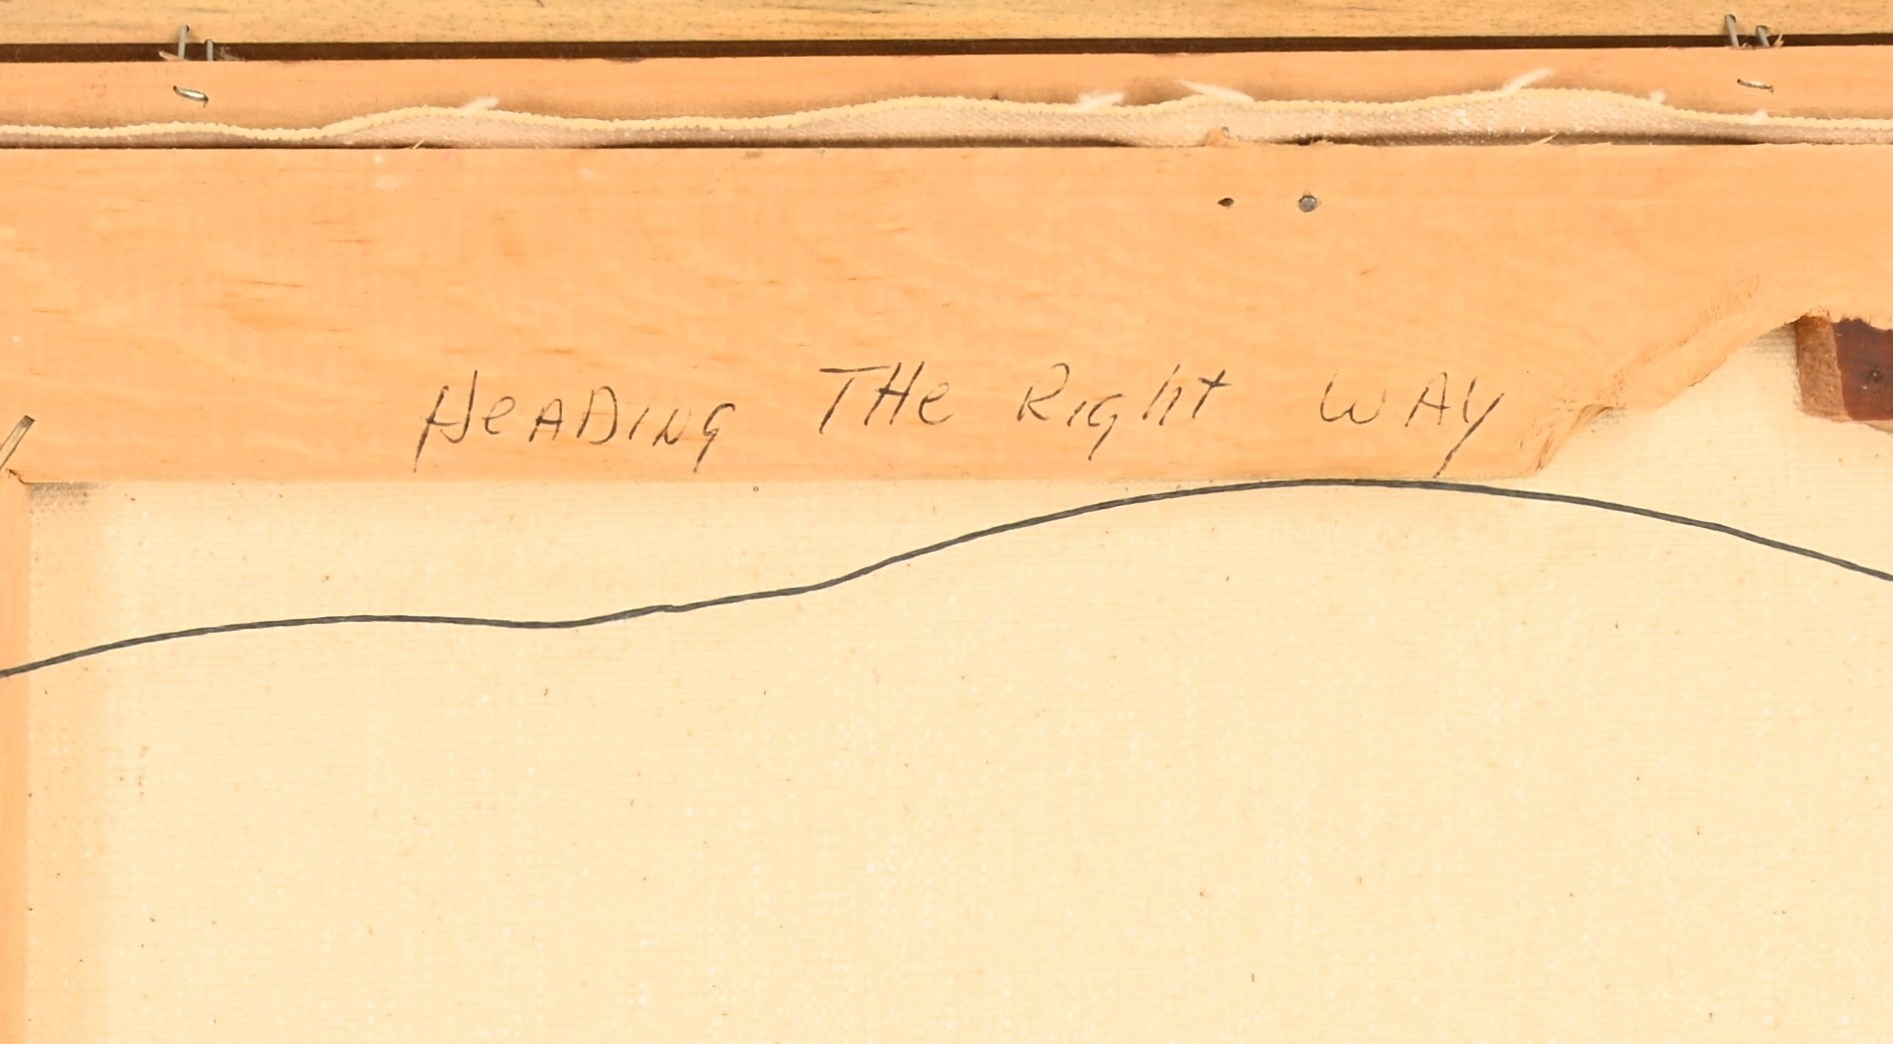 HeADING THe RighT WAY